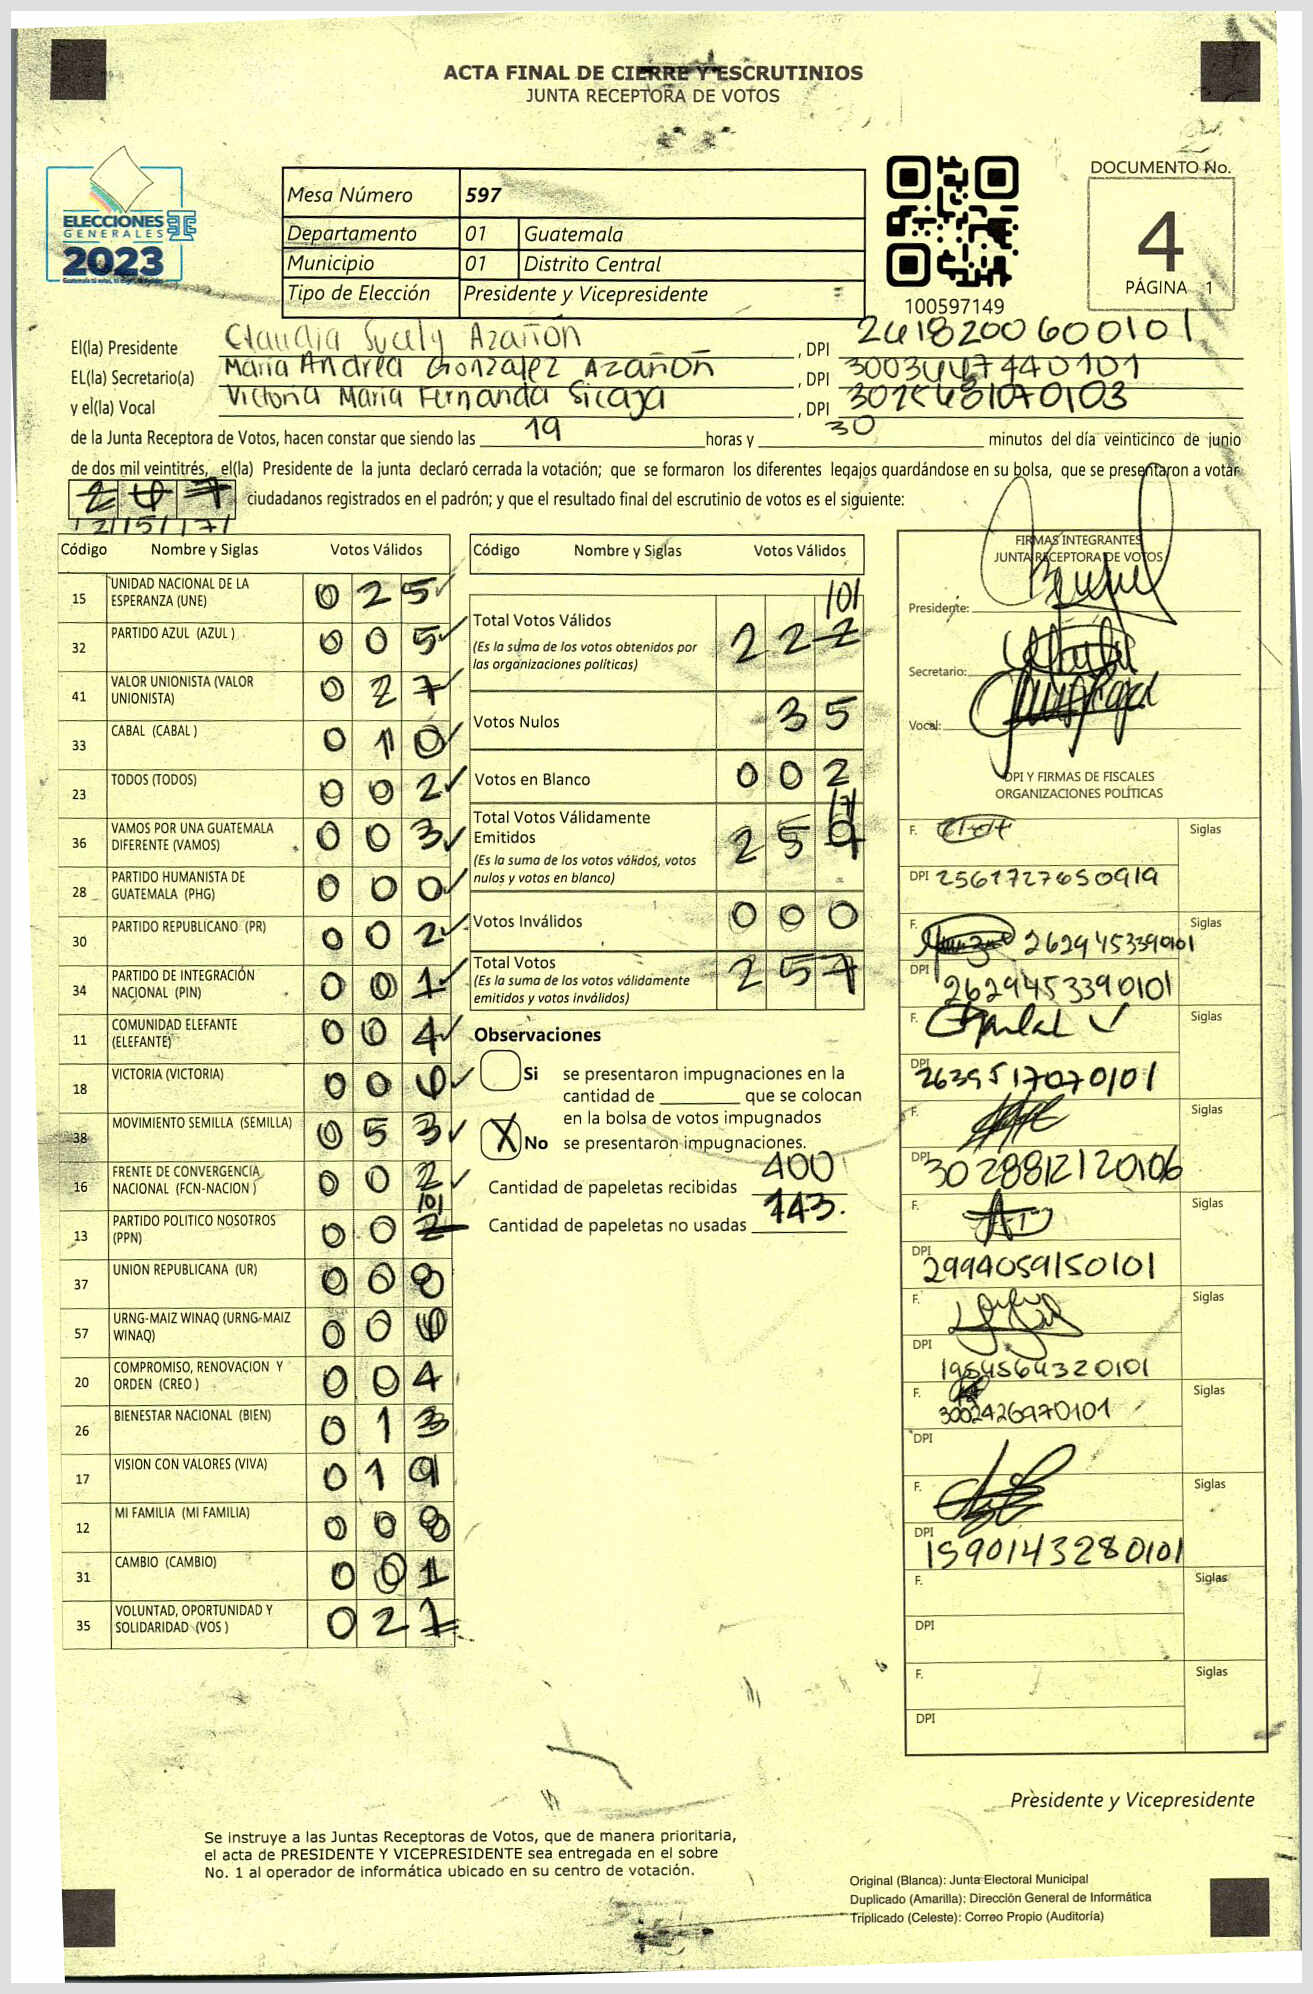 ACTA FINAL DE CIERRE Y ESCRUTINIOS
JUNTA RECEPTORA DE VOTOS
ELECCIONES
GENERALES
2023
Mesa Número 597
Departamento 01 Guatemala
Municipio 01 Distrito Central
Tipo de Elección Presidente y Vicepresidente
100597149
DOCUMENTO No.
4
PÁGINA 1
El(la) Presidente Claudia Sucely Azañón , DPI 2418200600101
EL(la) Secretario(a) Maria Andrea Gonzalez Azañón , DPI 3003447440101
y el(la) Vocal Victoria Maria Fernanda Sicaja , DPI
de la Junta Receptora de Votos, hacen constar que siendo las 19 horas y 30 minutos del día veinticinco de junio
de dos mil veintitrés, el(la) Presidente de la junta declaró cerrada la votación; que se formaron los diferentes legajos guardándose en su bolsa, que se presentaron a votar
ciudadanos registrados en el padrón; y que el resultado final del escrutinio de votos es el siguiente:
/2/5/7/
Código Nombre y Siglas Votos Válidos
15 UNIDAD NACIONAL DE LA ESPERANZA (UNE) 0 2 5
32 PARTIDO AZUL (AZUL ) 0 0 5
41 VALOR UNIONISTA (VALOR UNIONISTA) 0 2 7
33 CABAL (CABAL ) 0 1 0
23 TODOS (TODOS) 0 0 2
36 VAMOS POR UNA GUATEMALA DIFERENTE (VAMOS) 0 0 3
28 PARTIDO HUMANISTA DE GUATEMALA (PHG) 0 0 0
30 PARTIDO REPUBLICANO (PR) 0 0 2
34 PARTIDO DE INTEGRACIÓN NACIONAL (PIN) 0 0 1
11 COMUNIDAD ELEFANTE (ELEFANTE) 0 0 4
18 VICTORIA (VICTORIA) 0 0 6
38 MOVIMIENTO SEMILLA (SEMILLA) 0 5 3
16 FRENTE DE CONVERGENCIA NACIONAL (FCN-NACION ) 0 0 2
13 PARTIDO POLITICO NOSOTROS (PPN) 0 0 /0/
37 UNION REPUBLICANA (UR) 0 0 8
57 URNG-MAIZ WINAQ (URNG-MAIZ WINAQ) 0 0
20 COMPROMISO, RENOVACION Y ORDEN (CREO ) 0 0 4
26 BIENESTAR NACIONAL (BIEN) 0 1 3
17 VISION CON VALORES (VIVA) 0 1 9
12 MI FAMILIA (MI FAMILIA) 0 0 8
31 CAMBIO (CAMBIO) 0 0 1
35 VOLUNTAD, OPORTUNIDAD Y SOLIDARIDAD (VOS ) 0 2 1
Código Nombre y Siglas Votos Válidos
/0/
Total Votos Válidos 2 2 2
(Es la suma de los votos obtenidos por
las organizaciones políticas)
Votos Nulos 3 5
Votos en Blanco 0 0 2
/7/
Total Votos Válidamente
Emitidos 2 5 9
(Es la suma de los votos válidos, votos
nulos y votos en blanco)
Votos Inválidos 0 0 0
Total Votos 2 5 7
(Es la suma de los votos válidamente
emitidos y votos inválidos)
Observaciones
Si se presentaron impugnaciones en la
cantidad de ________ que se colocan
en la bolsa de votos impugnados
X No se presentaron impugnaciones.
Cantidad de papeletas recibidas 400
Cantidad de papeletas no usadas 143.
FIRMAS INTEGRANTES
JUNTA RECEPTORA DE VOTOS
Presidente:
Secretario:
Vocal:
DPI Y FIRMAS DE FISCALES
ORGANIZACIONES POLÍTICAS
F. Siglas
DPI 2561727650919
F. 2629453390101 Siglas
DPI 2629453390101
F. Siglas
DPI 2639517070101
F. Siglas
DPI 3028812120106
F. Siglas
DPI 2994059150101
F. Siglas
DPI 1954564320101
F. Siglas
3002426970101
DPI
F. Siglas
DPI 1590143280101
F. Siglas
DPI
F. Siglas
DPI
Presidente y Vicepresidente
Se instruye a las Juntas Receptoras de Votos, que de manera prioritaria,
el acta de PRESIDENTE Y VICEPRESIDENTE sea entregada en el sobre
No. 1 al operador de informática ubicado en su centro de votación.
Original (Blanca): Junta Electoral Municipal
Duplicado (Amarilla): Dirección General de Informática
Triplicado (Celeste): Correo Propio (Auditoría)